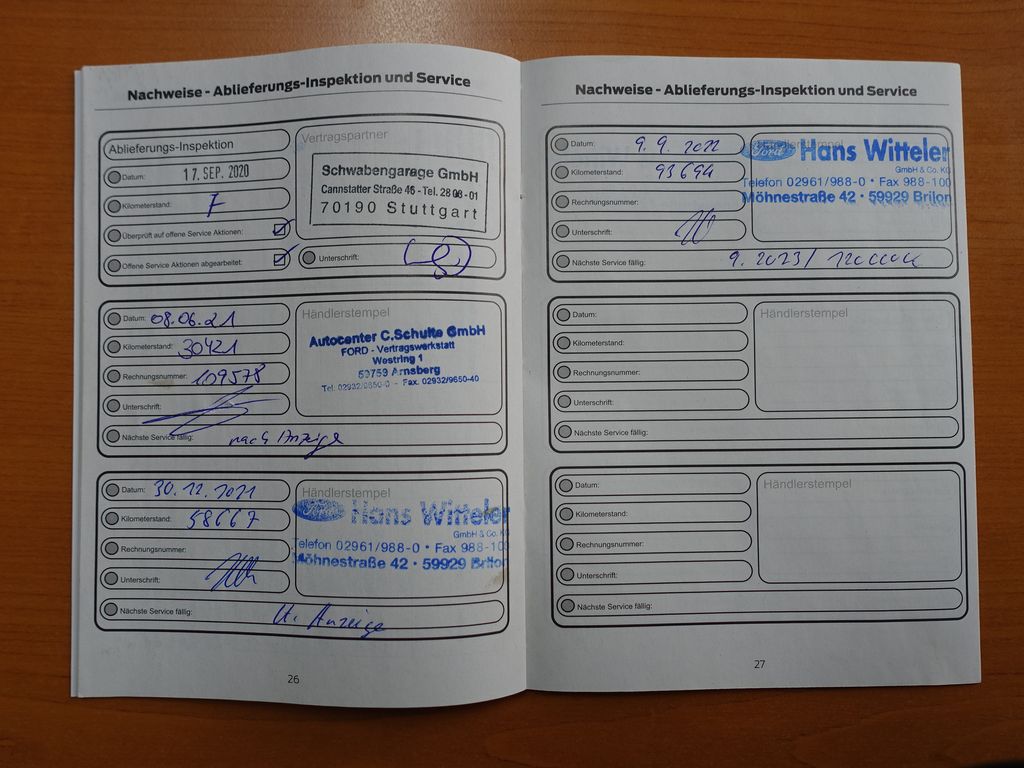 Nachweise - Ablieferungs-Inspektion und Service
Ablieferungs-Inspektion
Datum: 17. SEP. 2020
Kilometerstand: F
Überprüft auf offene Service Aktionen:
Offene Service Aktionen abgearbeitet:
Vertragspartner
Schwabengarage GmbH
Cannstatter Straße 46 - Tel. 28 08 - 01
70190 Stuttgart
Unterschrift:
Datum: 08.06.21
Kilometerstand: 30421
Rechnungsnummer: 109578
Unterschrift:
Nächste Service fällig: nach Anzeige
Händlerstempel
Autocenter C.Schulte GmbH
FORD - Vertragswerkstatt
Westring 1
59759 Arnsberg
Tel. 02932/9650-0 - Fax. 02932/9650-40
Datum: 30.12.2021
Kilometerstand: 58667
Rechnungsnummer:
Unterschrift:
Nächste Service fällig: lt. Anzeige
Händlerstempel
Ford Hans Witteler
GmbH & Co. KG
Telefon 02961/988-0 • Fax 988-100
Möhnestraße 42 • 59929 Brilon
26
Nachweise - Ablieferungs-Inspektion und Service
Datum: 9.9.2022
Kilometerstand: 93694
Rechnungsnummer:
Unterschrift:
Nächste Service fällig: 9.2023/ 120000
Händlerstempel
Ford Hans Witteler
GmbH & Co. KG
Telefon 02961/988-0 • Fax 988-100
Möhnestraße 42 • 59929 Brilon
Datum:
Kilometerstand:
Rechnungsnummer:
Unterschrift:
Nächste Service fällig:
Händlerstempel
Datum:
Kilometerstand:
Rechnungsnummer:
Unterschrift:
Nächste Service fällig:
Händlerstempel
27